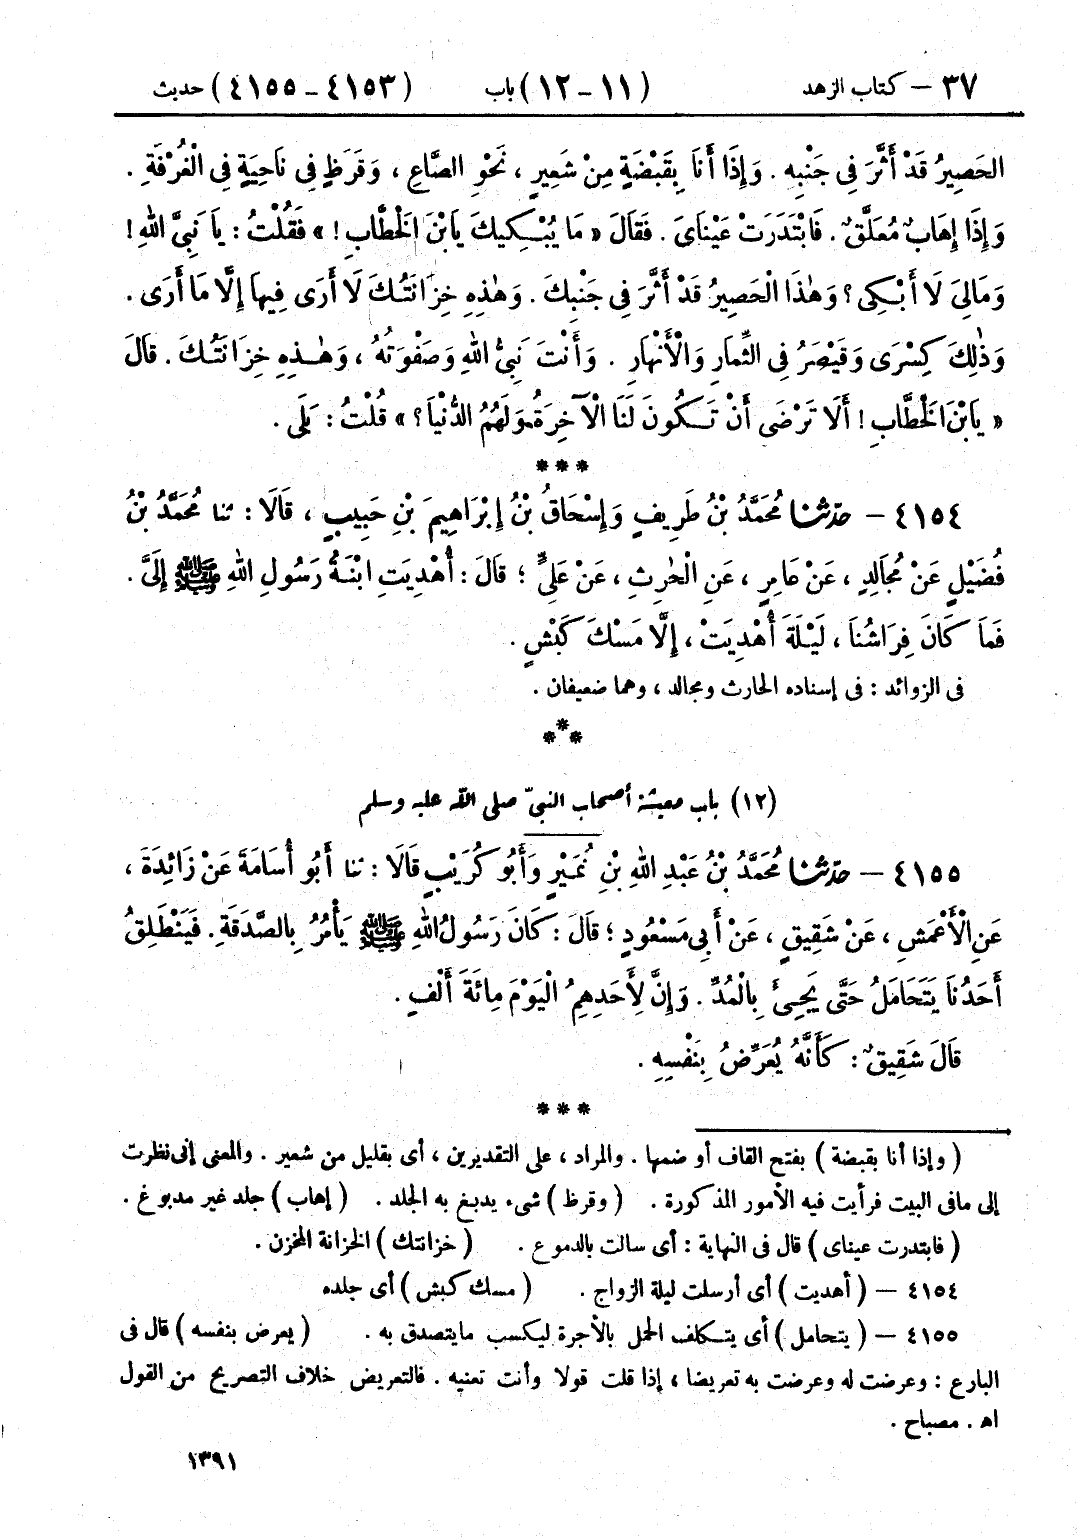 ٣٧ — كتاب الزهد (١١ – ١٢) باب (٤١٥٣ – ٤١٥٥) حديث
الحَصِيرُ قَدْ أَثَّرَ فِي جَنْبِهِ . وَإِذَا أَنَا بِقَبْضَةٍ مِنْ شَعِيرٍ ، نَحْوِ الصَّاعِ ، وَقَرَظٍ فِي نَاحِيَةٍ فِي الْغُرْفَةِ .
وَإِذَا إِهَابٌ مُعَلَّقٌ . فَابْتَدَرَتْ عَيْنَايَ . فَقَالَ « مَا يُبْكِيكَ يَابْنَ الْخَطَّابِ ! » فَقُلْتُ : يَا نَبِيَّ اللهِ !
وَمَالِيَ لَا أَبْكِي ؟ وَهٰذَا الْحَصِيرُ قَدْ أَثَّرَ فِي جَنْبِكَ . وَهٰذِهِ خِزَانَتُكَ لَا أَرَى فِيهَا إِلَّا مَا أَرَى .
وَذٰلِكَ كِسْرَى وَقَيْصَرُ فِي الثِّمَارِ وَالْأَنْهَارِ . وَأَنْتَ نَبِيُّ اللهِ وَصَفْوَتُهُ ، وَهٰذِهِ خِزَانَتُكَ . قَالَ
« يَابْنَ الْخَطَّابِ ! أَلَا تَرْضَى أَنْ تَكُونَ لَنَا الْآخِرَةُ وَلَهُمُ الدُّنْيَا ؟ » قُلْتُ : بَلَى .
***
٤١٥٤ — حدّثنا مُحَمَّدُ بْنُ طَرِيفٍ وَإِسْحَاقُ بْنُ إِبْرَاهِيمَ بْنِ حَبِيبٍ ، قَالَا : ثنا مُحَمَّدُ بْنُ
فُضَيْلٍ عَنْ مُجَالِدٍ ، عَنْ عَامِرٍ ، عَنِ الْحٰرِثِ ، عَنْ عَلِيٍّ ؛ قَالَ : أُهْدِيَتِ ابْنَةُ رَسُولِ اللهِ ﷺ إِلَيَّ .
فَمَا كَانَ فِرَاشُنَا ، لَيْلَةَ أُهْدِيَتْ ، إِلَّا مَسْكَ كَبْشٍ .
فى الزوائد : فى إسناده الحارث ومجالد ، وهما ضعيفان .
***
(١٢) باب معيشة أصحاب النبيّ صلى الله عليه وسلم
٤١٥٥ — حدّثنا مُحَمَّدُ بْنُ عَبْدِ اللهِ بْنِ نُمَيْرٍ وَأَبُو كُرَيْبٍ قَالَا : ثنا أَبُو أُسَامَةَ عَنْ زَائِدَةَ ،
عَنِ الْأَعْمَشِ ، عَنْ شَقِيقٍ ، عَنْ أَبِي مَسْعُودٍ ؛ قَالَ : كَانَ رَسُولُ اللهِ ﷺ يَأْمُرُ بِالصَّدَقَةِ . فَيَنْطَلِقُ
أَحَدُنَا يَتَحَامَلُ حَتَّى يَجِيءَ بِالْمُدِّ . وَإِنَّ لِأَحَدِهِمُ الْيَوْمَ مِائَةَ أَلْفٍ .
قَالَ شَقِيقٌ : كَأَنَّهُ يُعَرِّضُ بِنَفْسِهِ .
***
( وإذا أنا بقبضة ) بفتح القاف أو ضمها . والمراد ، على التقديرين ، أى بقليل من شعير . والمعنى إنى نظرت
إلى مافى البيت فرأيت فيه الأمور المذكورة . ( وقرظ ) شىء يدبغ به الجلد . ( إهاب ) جلد غير مدبوغ .
( فابتدرت عيناى ) قال فى النهاية : أى سالت بالدموع . ( خزانتك ) الخزانة المخزن .
٤١٥٤ — ( أهديت ) أى أرسلت ليلة الزواج . ( مسك كبش ) أى جلده
٤١٥٥ — ( يتحامل ) أى يتكلف الحمل بالأجرة ليكسب مايتصدق به . ( يعرض بنفسه ) قال فى
البارع : وعرضت له وعرضت به تعريضا ، إذا قلت قولا وأنت تعنيه . فالتعريض خلاف التصريح من القول
اه . مصباح .
١٣٩١